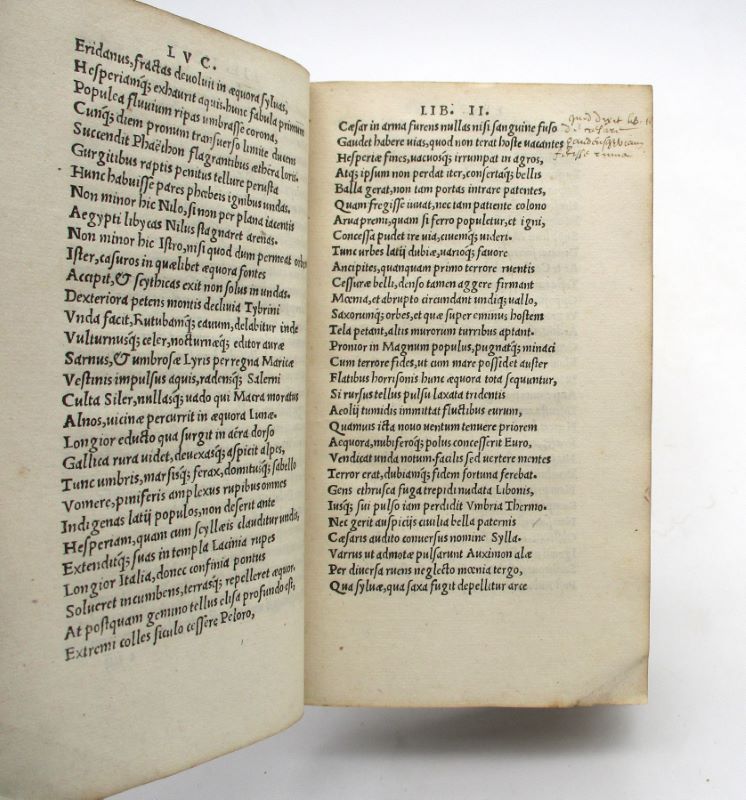 LVC.
Eridanus, fractas deuoluit in æquora syluas,
Hesperiamq; exhaurit aquis. hunc fabula primum
Populea fluuium ripas umbrasse corona,
Cunq; diem pronum transuerso limite ducens
Succendit Phaëthon flagrantibus æthera loris.
Gurgitibus raptis penitus tellure perusta
Hunc habuisse pares phœbeis ignibus undas.
Non minor hic Nilo, si non per plana iacentis
Aegypti libycas Nilus stagnaret arenas.
Non minor hic Istro, nisi quod dum permeat orbem
Ister, casuros in quælibet æquora fontes
Accipit, & scythicas exit non solus in undas.
Dexteriora petens montis decliuia Tybrini
Vnda facit, Rutubamq; cauum, delabitur inde
Vulturnusq; celer, nocturnæq; editor auræ
Sarnus, & umbrosæ Lyris per regna Maricæ
Vestinis impulsus aquis, radensq; Salerni
Culta Siler, nullasq; uado qui Macra moratus
Alnos, uicinæ percurrit in æquora Lunæ.
Longior educto qua surgit in aëra dorso
Gallica rura uidet, deuexasq; aspicit alpes,
Tunc umbris, marsisq; ferax, domitusq; sabello
Vomere, piniferis amplexus rupibus omnes
Indigenas latij populos, non deserit ante
Hesperiam, quam cum scyllæis clauditur undis,
Extenditq; suas in templa Lacinia rupes
Longior Italia, donec confinia pontus
Solueret incumbens, terrasq; repelleret æquor.
At postquam gemino tellus elisa profundo est,
Extremi colles siculo cessere Peloro,
LIB. II.
Cæsar in arma furens nullas nisi sanguine fuso
Gaudet habere uias, quod non terat hoste uacantes
Hesperiæ fines, uacuosq; irrumpat in agros,
Atq; ipsum non perdat iter, consertaq; bellis
Bella gerat, non tam portas intrare patentes,
Quam fregisse iuuat, nec tam patiente colono
Arua premi, quam si ferro populetur, et igni,
Concessa pudet ire uia, ciuemq; uideri.
Tunc urbes latij dubiæ, uarioq; fauore
Ancipites, quanquam primo terrore ruentis
Cessuræ belli, denso tamen aggere firmant
Mœnia, et abrupto circundant undiq; uallo,
Saxorumq; orbes, et quæ super eminus hostem
Tela petant, altis murorum turribus aptant.
Pronior in Magnum populus, pugnatq; minaci
Cum terrore fides, ut cum mare possidet auster
Flatibus horrisonis hunc æquora tota sequuntur,
Si rursus tellus pulsu laxata tridentis
Aeolij tumidis immittat fluctibus eurum,
Quamuis icta nouo uentum tenuere priorem
Aequora, nubiferoq; polus concesserit Euro,
Vendicat unda notum. facilis sed uertere mentes
Terror erat, dubiamq; fidem fortuna ferebat.
Gens ethrusca fuga trepidi nudata Libonis,
Iusq; sui pulso iam perdidit Vmbria Thermo.
Nec gerit auspicijs ciuilia bella paternis
Cæsaris audito conuersus nomine Sylla.
Varrus ut admotæ pulsarunt Auximon alæ
Per diuersa ruens neglecto mœnia tergo,
Qua syluæ, qua saxa fugit depellitur arce
quod dixit lib.
de cæsare
ruina